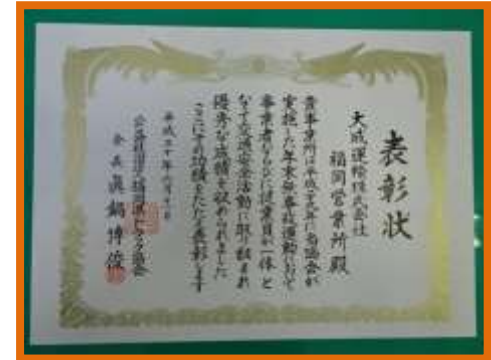 表彰状
大成運輸株式会社
福岡営業所殿
貴事業所は平成二十九年に当協会が
実施した年末無事故運動において
事業者ならびに従業員が一体と
なって交通安全活動に取り組まれ
優秀な成績を収められました
ここにその功績をたたえ表彰します
平成三十年
公益社団法人福岡県トラック協会
会長眞鍋博俊